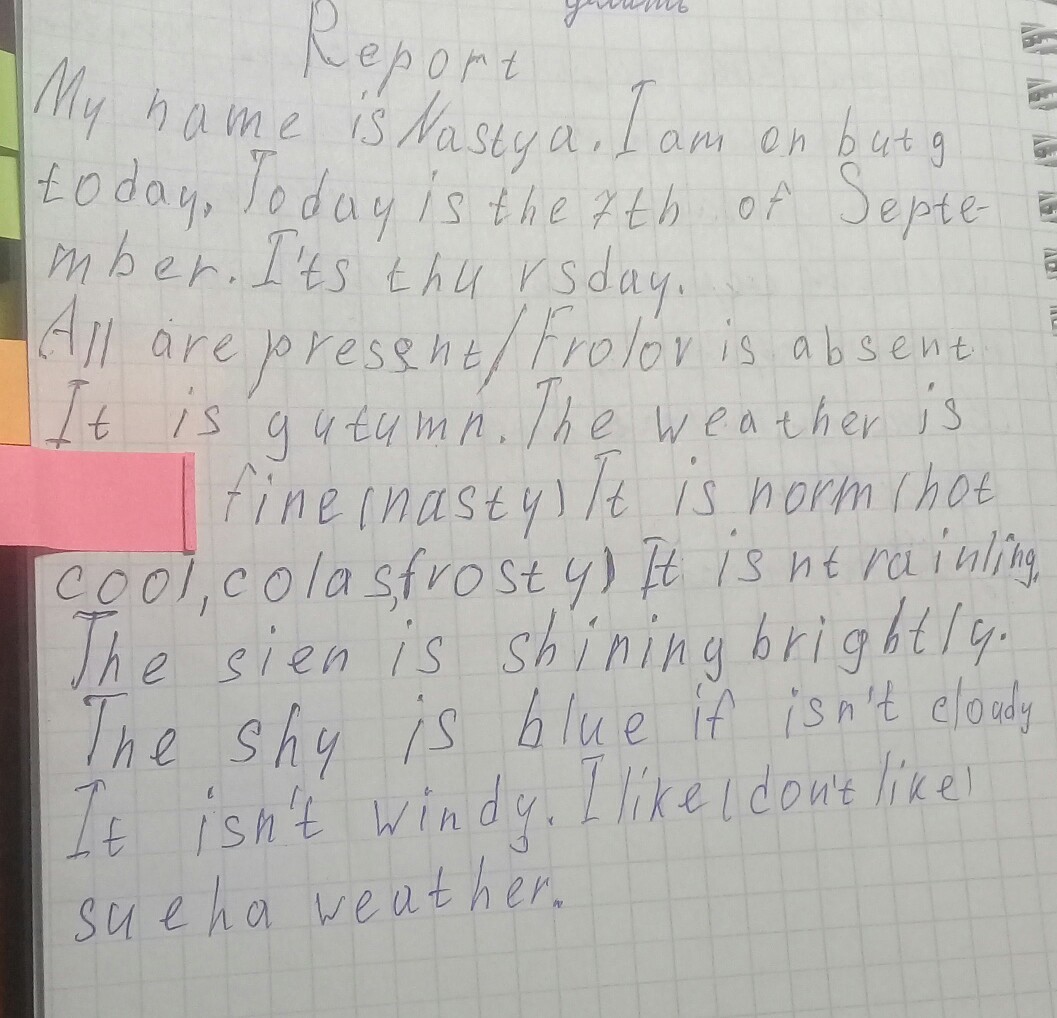 Report
My name is Nastya. I am on butg
today. Today is the 7th of Septe-
mber. I'ts thu rsday.
All are present/Frolov is absent
It is gutumn. The weather is
fine(nasty) It is norm(hot
cool, colas, frosty) It is nt rainling.
The sien is shining brightly.
The shy is blue if isn't cloady
It isn't windy. I like(don't like)
sueha weather.